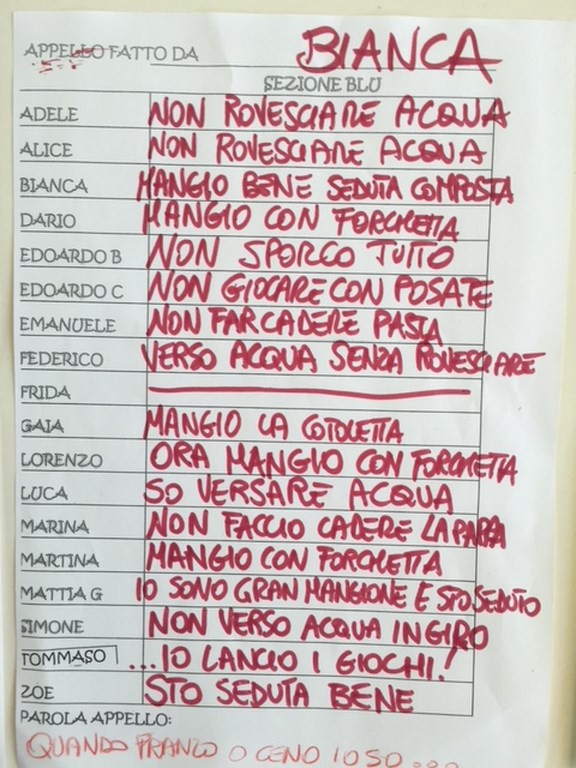 APPELLO FATTO DA BIANCA
SEZIONE BLU
ADELE NON ROVESCIARE ACQUA
ALICE NON ROVESCIARE ACQUA
BIANCA MANGIO BENE SEDUTA COMPOSTA
DARIO MANGIO CON FORCHETTA
EDOARDO B NON SPORCO TUTTO
EDOARDO C NON GIOCARE CON POSATE
EMANUELE NON FAR CADERE PASTA
FEDERICO VERSO ACQUA SENZA ROVESCIARE
FRIDA
GAIA MANGIO LA COTOLETTA
LORENZO ORA MANGIO CON FORCHETTA
LUCA SO VERSARE ACQUA
MARINA NON FACCIO CADERE LA PAPPA
MARTINA MANGIO CON FORCHETTA
MATTIA G IO SONO GRAN MANGIONE E STO SEDUTO
SIMONE NON VERSO ACQUA IN GIRO
TOMMASO ...IO LANCIO I GIOCHI!
ZOE STO SEDUTA BENE
PAROLA APPELLO:
QUANDO PRANZO O CENO IO SO...